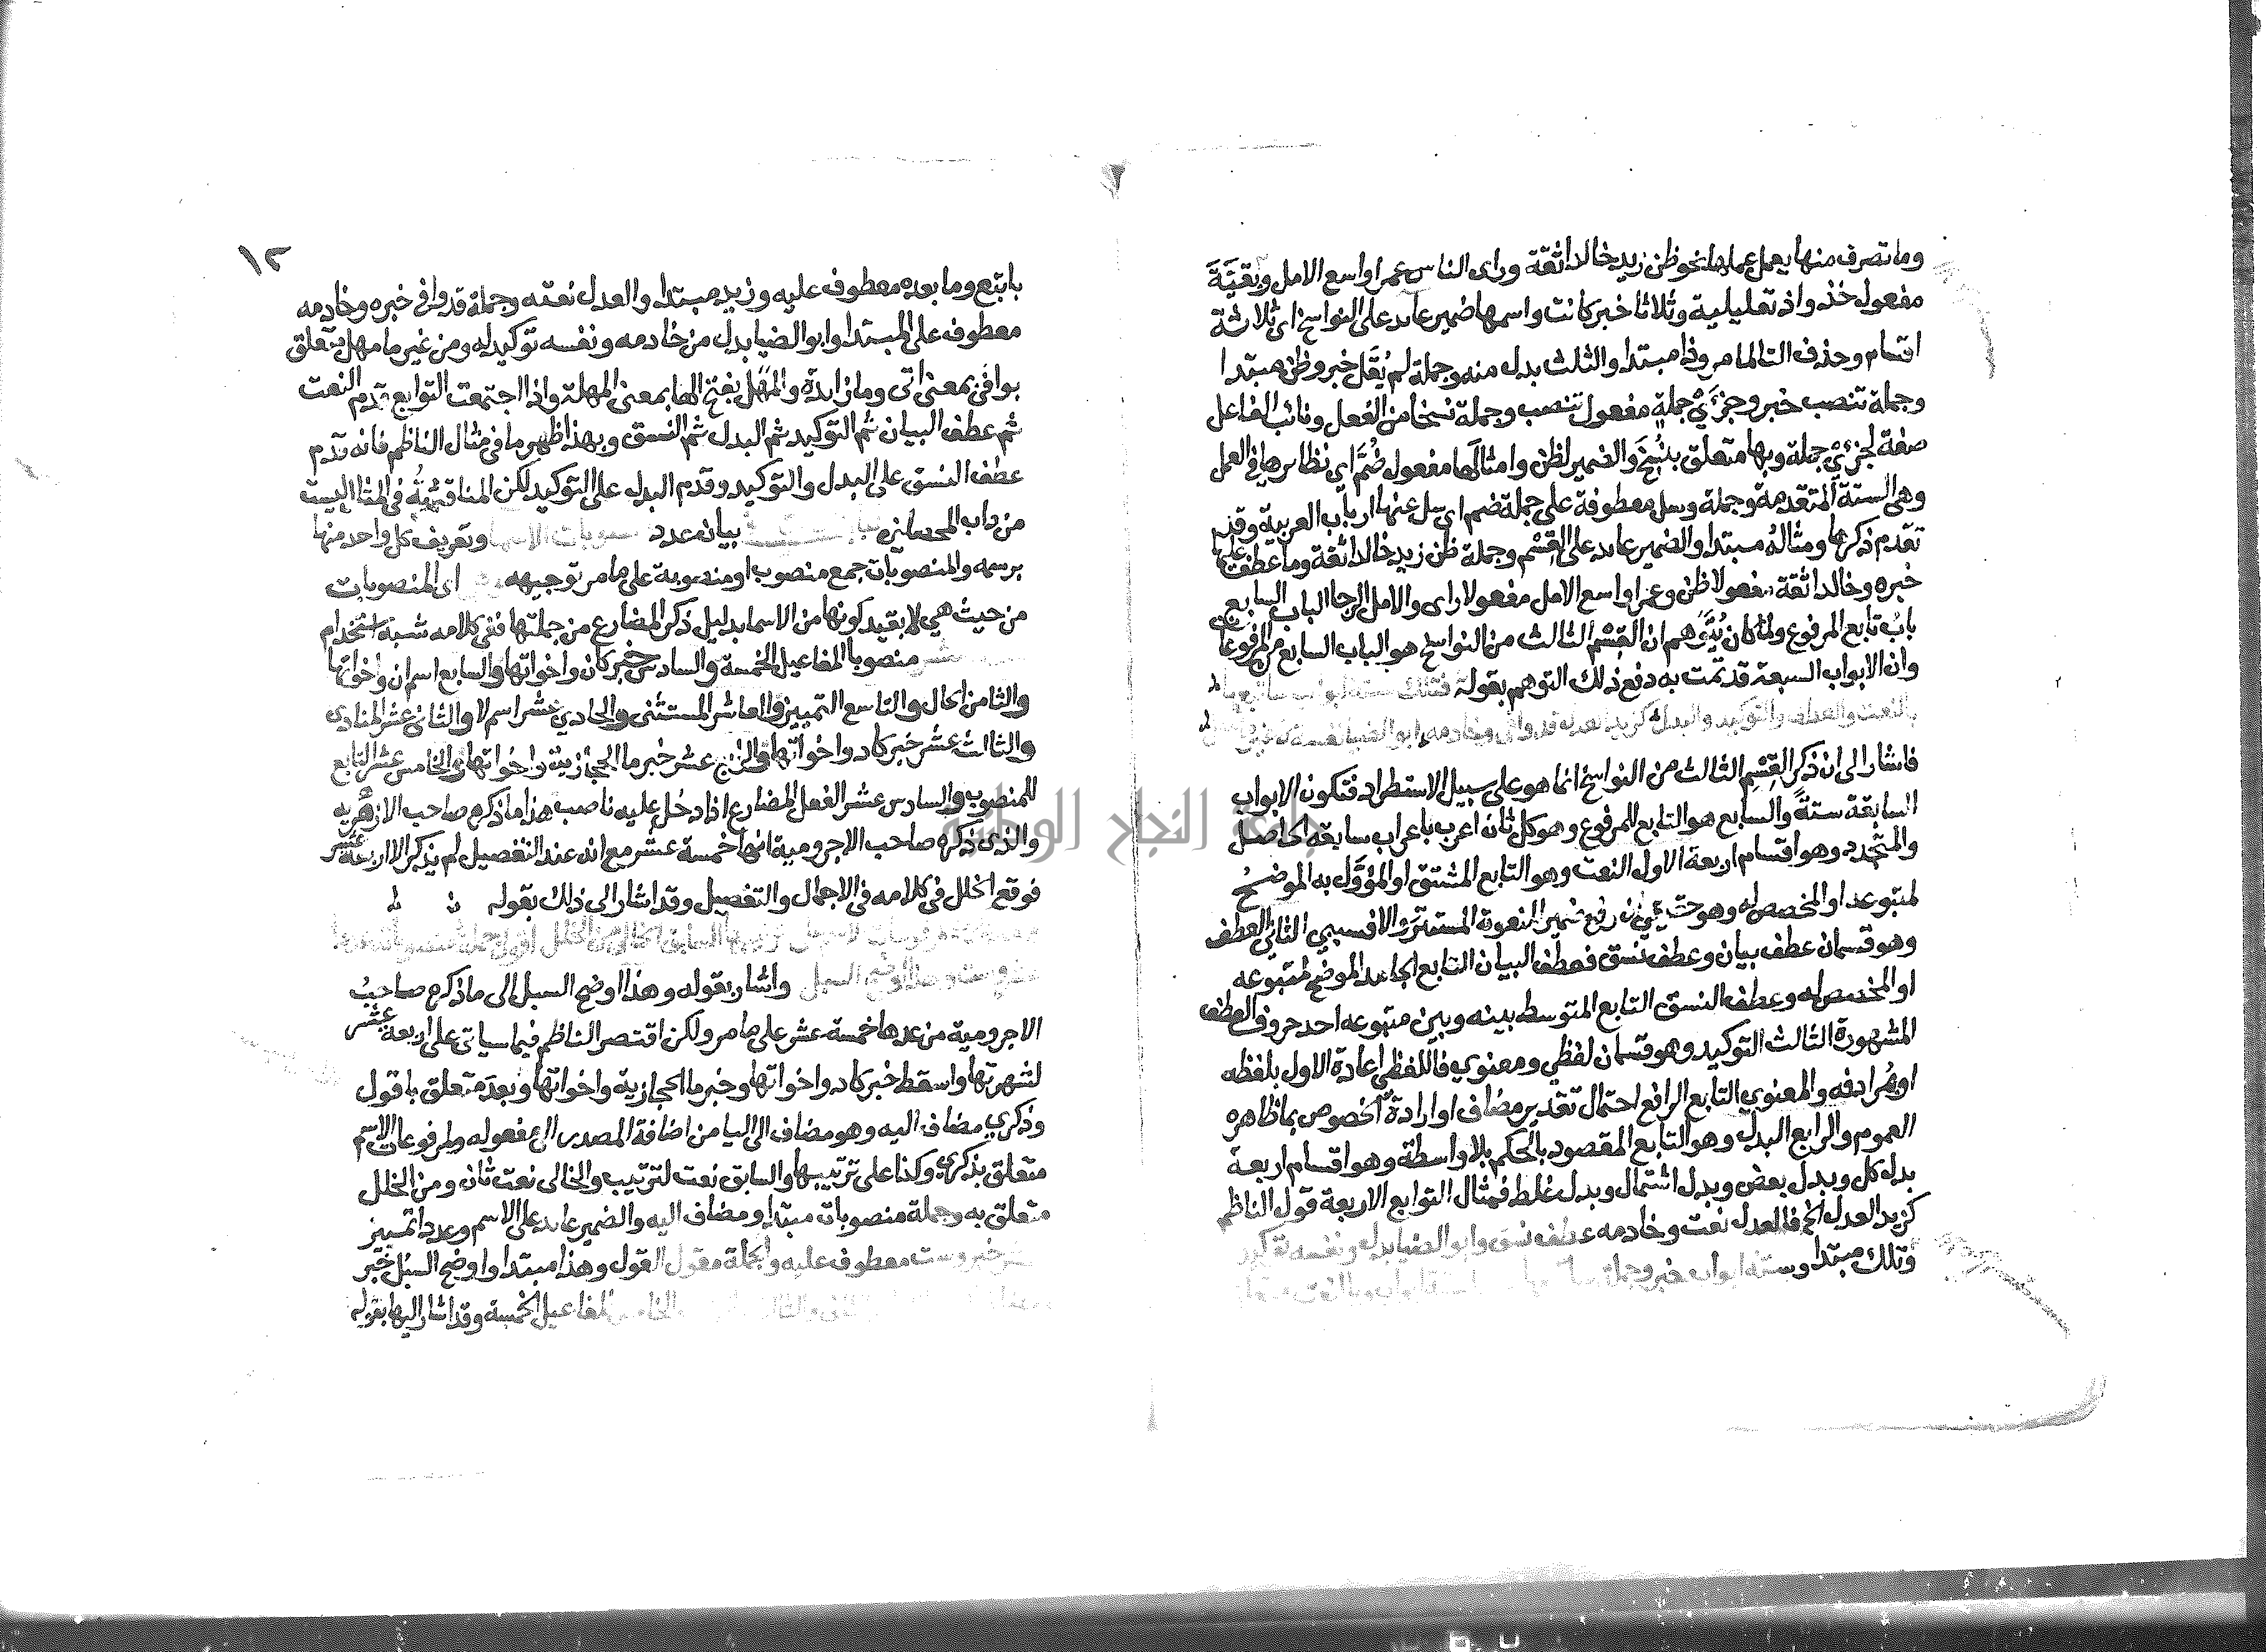 وما تصرف منها يعمل عملها نحو ظن زيد خالدا ثقة وراى الناس عمرا واسع الامل وبقية
مفعول خذ واذ تعليلية وثلاثا خبر كانت واسمها ضمير عايد على النواسخ اي ثلاثة
اقسام وحذف التا لما مر وذا مبتدا والثلث بدل منه وجملة لم يقل خبر وظن مبتدا
وجملة تنصب خبر وجزءي جملة مفعول تنصب وجملة نسخا من الفعل ونائب الفاعل
صفة لجزءي جملة وبها متعلق بنسخ والضمير لظن وامثالها مفعول ضم اي نظائرها في العمل
وهي الستة المتقدمة وجملة وسل معطوفة على جملة ضم اي سل عنها ارباب العربية وقد
تقدم ذكرها ومثاله مبتدا والضمير عايد على القسم وجملة ظن زيد خالدا ثقة وما عطف عليها
خبره وخالدا ثقة مفعولا ظن وعمرا واسع الامل مفعولا راى والامل الرجا الباب السابع
باب تابع المرفوع ولما كان يتوهم ان القسم الثالث من النواسخ هو الباب السابع من المرفوعات
وان الابواب السبعة قد تمت به دفع ذلك التوهم بقوله فتلك ستة
بالنعت والعطف والتوكيد والبدل كزيد العدل قد وافى وخادمه ابو الضيا نفسه من غير
فاشار الى ان ذكر القسم الثالث من النواسخ انما هو على سبيل الاستطراد فتكون الابواب
السابقة ستة والسابع هو التابع للمرفوع وهو كل ثان اعرب باعراب سابقه الحاصل
والمتجدد وهو اقسام اربعة الاول النعت وهو التابع المشتق او المؤول به الموضح
لمتبوعه او المخصص له وهو حقيقي ان رفع ضمير المنعوت المستتر والا فسببي الثاني العطف
وهو قسمان عطف بيان وعطف نسق فعطف البيان التابع الجامد الموضح لمتبوعه
او المخصص له وعطف النسق التابع المتوسط بينه وبين متبوعه احد حروف العطف
المشهورة الثالث التوكيد وهو قسمان لفظي ومعنوي فاللفظي اعادة الاول بلفظه
او بمرادفه والمعنوي التابع الرافع احتمال تقدير مضاف او ارادة الخصوص بما ظاهره
العموم والرابع البدل وهو التابع المقصود بالحكم بلا واسطة وهو اقسام اربعة
بدل كل وبدل بعض وبدل اشتمال وبدل غلط فمثال التوابع الاربعة قول الناظم
كزيد العدل الخ فالعدل نعت وخادمه عطف نسق وابو الضيا بدل ونفسه توكيد
وتلك مبتدا وستة ابواب خبر وجملة
١٢
باتبع وما بعده معطوف عليه وزيد مبتدا والعدل نعته وجملة قد وافى خبره وخادمه
معطوف على المبتدا وابو الضيا بدل من خادمه ونفسه توكيد له ومن غير ما مهل متعلق
بوافى بمعنى اتى وما زايدة والمهل بفتح الها بمعنى المهلة واذا اجتمعت التوابع قدم النعت
ثم عطف البيان ثم التوكيد ثم البدل ثم النسق وبهذا ظهر ما في مثال الناظم فانه قدم
عطف النسق على البدل والتوكيد وقدم البدل على التوكيد لكن المناقشة في المثال ليست
من داب المحصلين بيان عدد منصوبات الاسما وتعريف كل واحد منها
برسمه والمنصوبات جمع منصوب او منصوبة على ما مر توجيهه اي المنصوبات
من حيث هي لا بقيد كونها من الاسما بدليل ذكر المضارع من جملتها ففي كلامه شبه استخدام
عشر منصوبا المفاعيل الخمسة والسادس خبر كان واخواتها والسابع اسم ان واخواتها
والثامن الحال والتاسع التمييز والعاشر المستثنى والحادي عشر اسم لا والثاني عشر المنادى
والثالث عشر خبر كاد واخواتها والرابع عشر خبر ما الحجازية واخواتها والخامس عشر التابع
للمنصوب والسادس عشر الفعل المضارع اذا دخل عليه ناصب هذا ما ذكره صاحب الازهرية
والذي ذكره صاحب الاجرومية انها خمسة عشر مع انه عند التفصيل لم يذكر الا اربعة عشر
فوقع الخلل في كلامه في الاجمال والتفصيل وقد اشار الى ذلك بقوله
السبل واشار بقوله وهذا اوضح السبل الى ما ذكره صاحب
الاجرومية من عدها خمسة عشر على ما مر ولكن اقتصر الناظم فيما سياتي على اربعة عشر
لشهرتها واسقط خبر كاد واخواتها وخبر ما الحجازية واخواتها وبعد متعلق باقول
وذكري مضاف اليه وهو مضاف الى اليا من اضافة المصدر الى مفعوله ولمرفوعات الاسم
متعلق بذكري وكذا على ترتيبها والسابق نعت لترتيب والخالي نعت ثان ومن الخلل
متعلق به وجملة منصوبات مبتدا ومضاف اليه والضمير عايد على الاسم وعددا تمييز
خبر وست معطوف عليه والجملة مقول القول وهذا مبتدا واوضح السبل خبر
المفاعيل الخمسة وقد اشار اليها بقوله
جامعة النجاح الوطنية